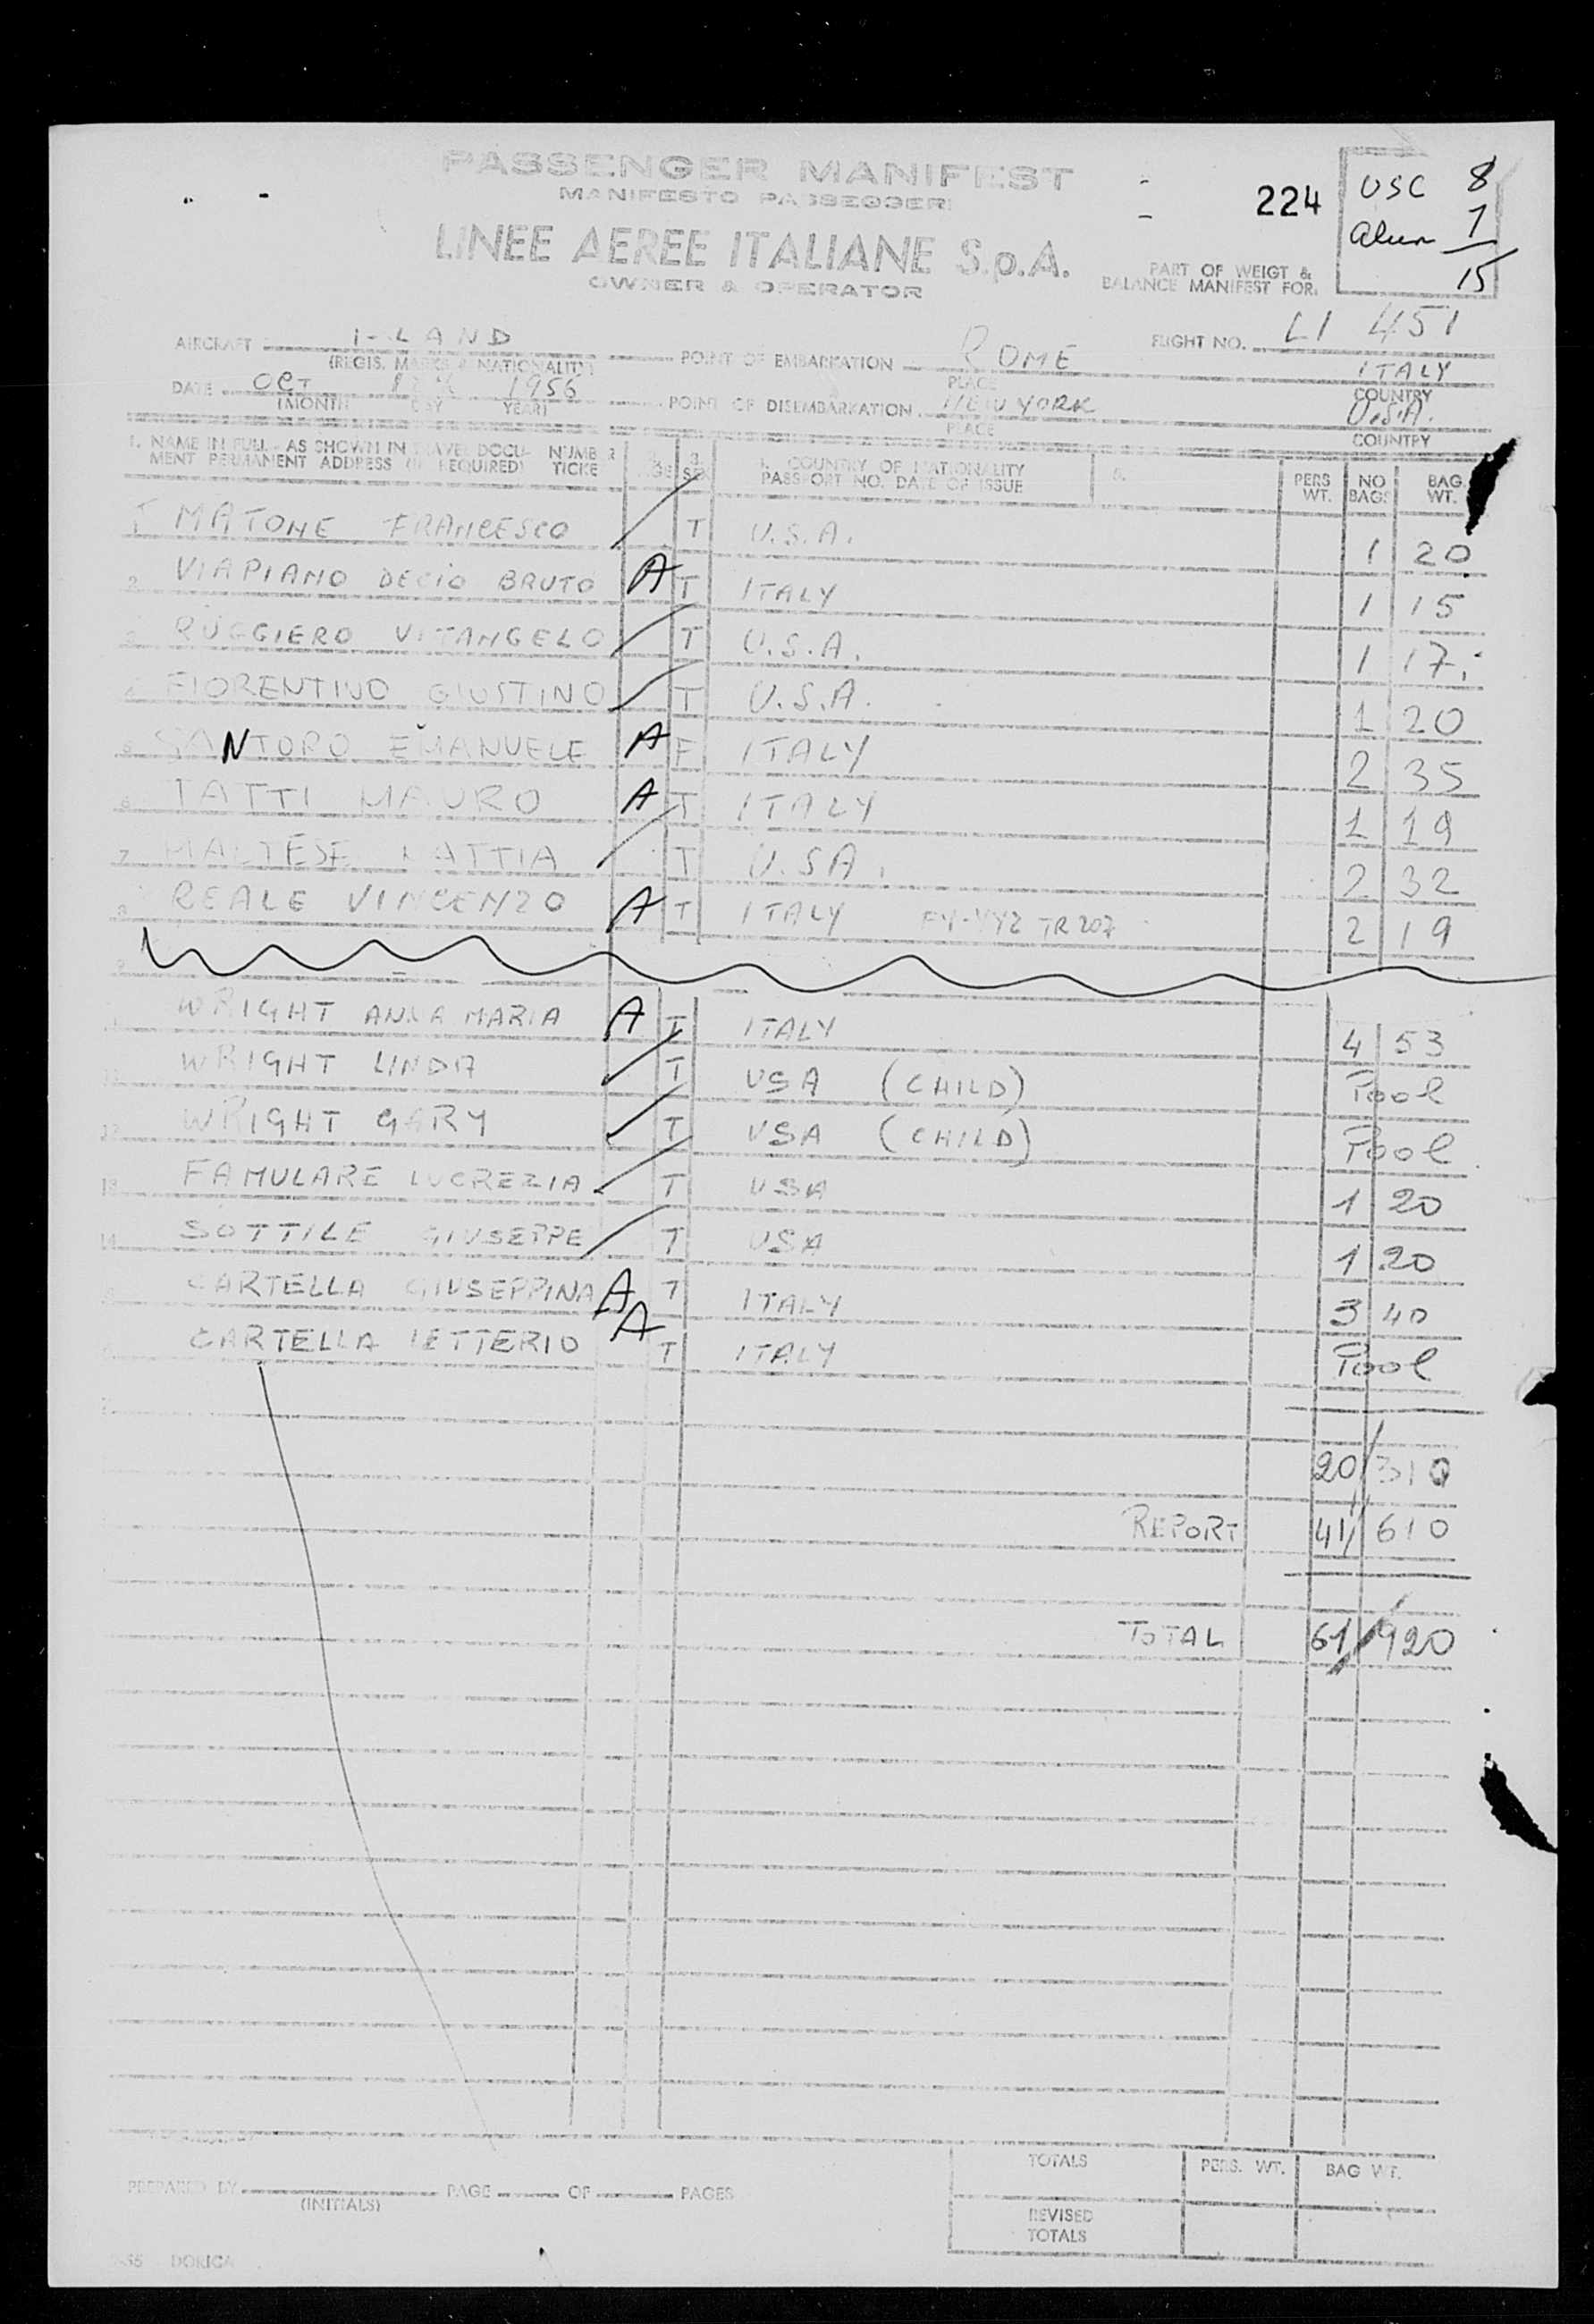 PASSENGER MANIFEST
MANIFESTO PASSEGGERI
224
USC 8
alien 7
15
LINEE AEREE ITALIANE S.p.A.
OWNER & OPERATOR
PART OF WEIGT &
BALANCE MANIFEST FOR:
AIRCRAFT I-LAND
(REGIS. MARKS & NATIONALITY)
POINT OF EMBARKATION ROME
PLACE
FLIGHT NO. LI 451
ITALY
COUNTRY
DATE OCT 1956
(MONTH DAY YEAR)
POINT OF DISEMBARKATION NEW YORK
PLACE
U.S.A.
COUNTRY
1. NAME IN FULL - AS SHOWN IN TRAVEL DOCU- NUMBER
MENT PERMANENT ADDRESS (IF REQUIRED) TICKE
AGE
3. SEX
4. COUNTRY OF NATIONALITY
PASSPORT NO. DATE OF ISSUE
5.
PERS WT.
NO BAGS
BAG. WT.
1 MATONE FRANCESCO T U.S.A. 1 20
2. VIAPIANO DECIO BRUTO A T ITALY 1 15
3. RUGGIERO VITANGELO T U.S.A. 1 17
4. FIORENTINO GIUSTINO T U.S.A. 1 20
5. SANTORO EMANUELE A F ITALY 2 35
6. TATTI MAURO A T ITALY 1 19
7. MALTESE MATTIA T U.S.A. 2 32
8. REALE VINCENZO A T ITALY FY-YYZ TR 207 2 19
9.
WRIGHT ANNA MARIA A T ITALY 4 53
11. WRIGHT LINDA T USA (CHILD) Pool
12. WRIGHT GARY T USA (CHILD) Pool
13. FAMULARE LUCREZIA T USA 1 20
14. SOTTILE GIUSEPPE T USA 1 20
CARTELLA GIUSEPPINA A T ITALY 3 40
CARTELLA LETTERIO A T ITALY Pool
20/310
REPORT 41/610
TOTAL 61/920
TOTALS PERS. WT. BAG WT.
PREPARED BY
(INITIALS)
PAGE OF PAGES
REVISED
TOTALS
DORICA